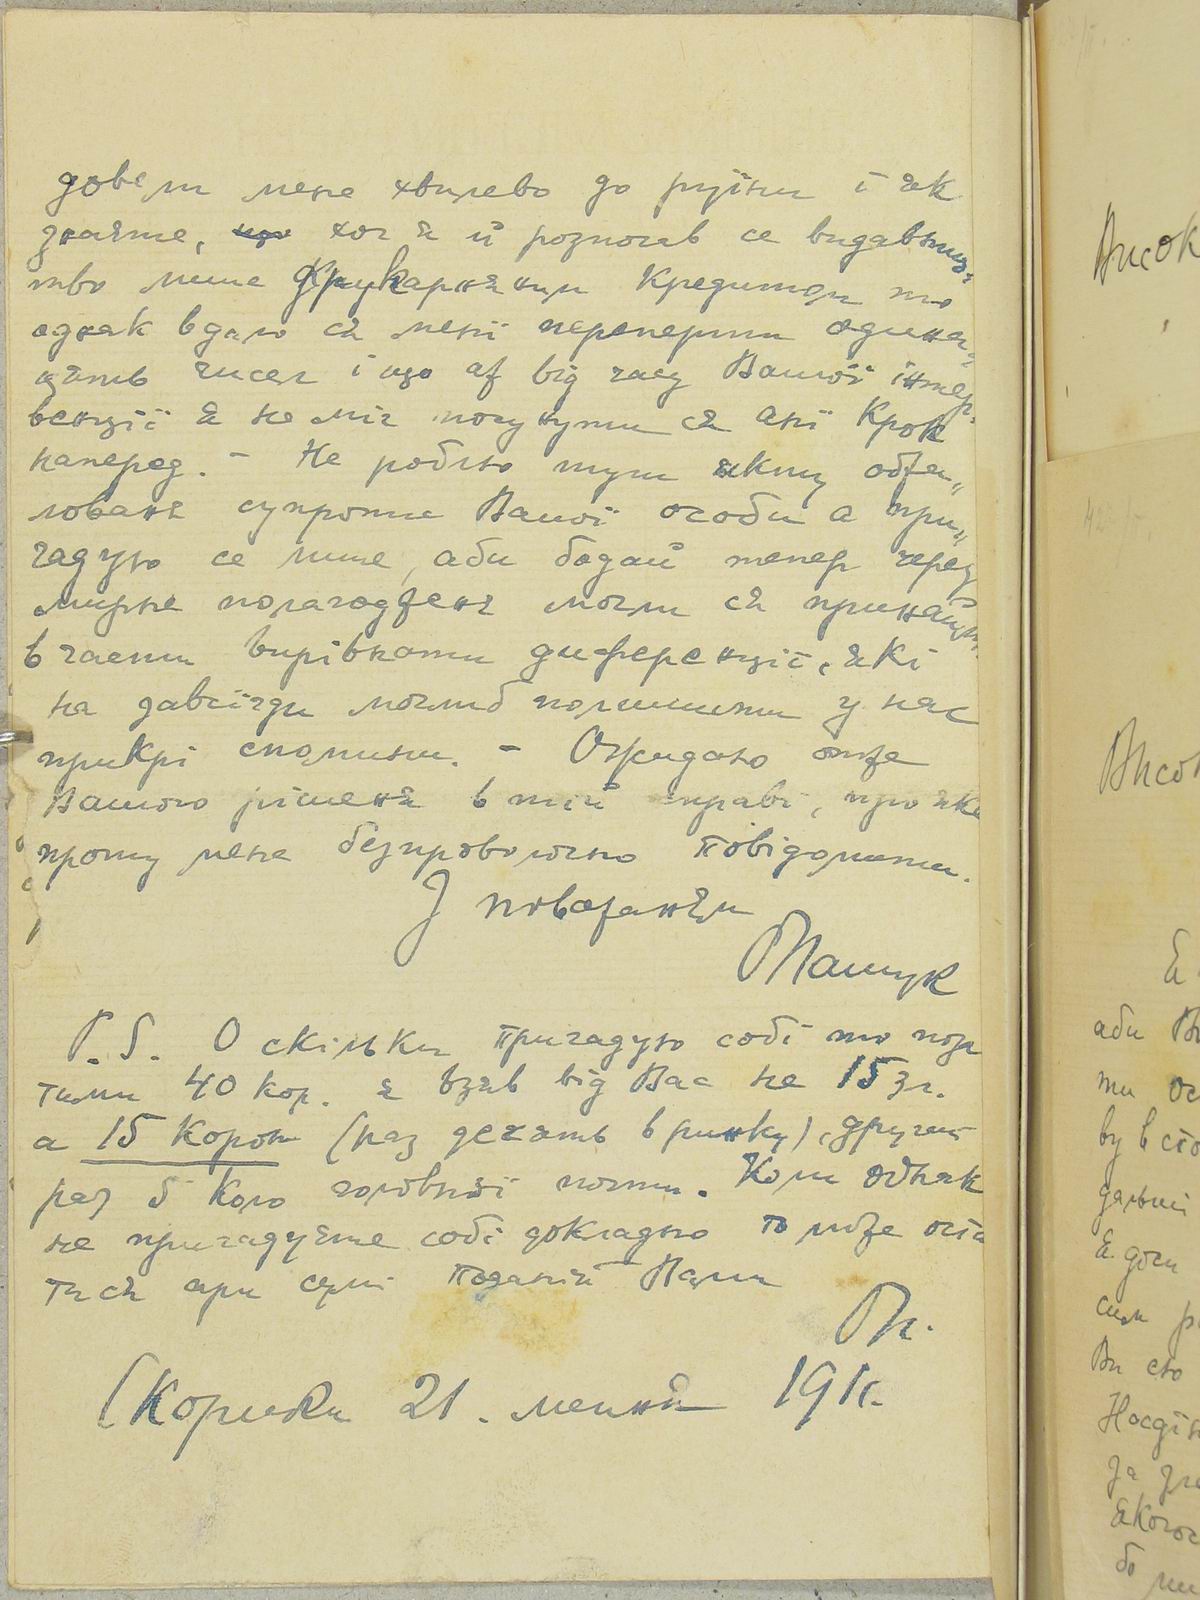 довели мене хвилево до руїни і як
знаєте, що хоч я й розпочав се видавниц-
тво лише друкарняним кредитом то
однак вдало ся мені переперти одинай-
цять чисел і що аж від часу Вашої інтер-
венції я не міг посунути ся ані крок
наперед. – Не роблю тут якту обжа-
лованя супроти Вашої особи а при-
гадую се лише, аби бодай тепер через
мирне полагодженя могли ся принайм.
в части вирівнати диференції, які
на завсїгди моглиб полишити у нас
прикрі спомини. – Ожидаю отже
Вашого рішеня в тій справі, про яке
прошу мене безпроволочно повідомити.
З поважанєм
Пащук
P.S. О скільки пригадую собі то поза
тими 40 кор. я взяв від Вас не 15 зл.
а 15 корон (раз десять в ринку), другий
раз 5 коло головної почти. Коли однак
не пригадуєте собі докладно то може оста
тись при сумі поданій Вами
Пк.
21. 191
Висок
Висок
Я
аби Ви
ти ос
ву в сто
дальші
Я доси
сим р
Ви сто
за
якогос
бо ми